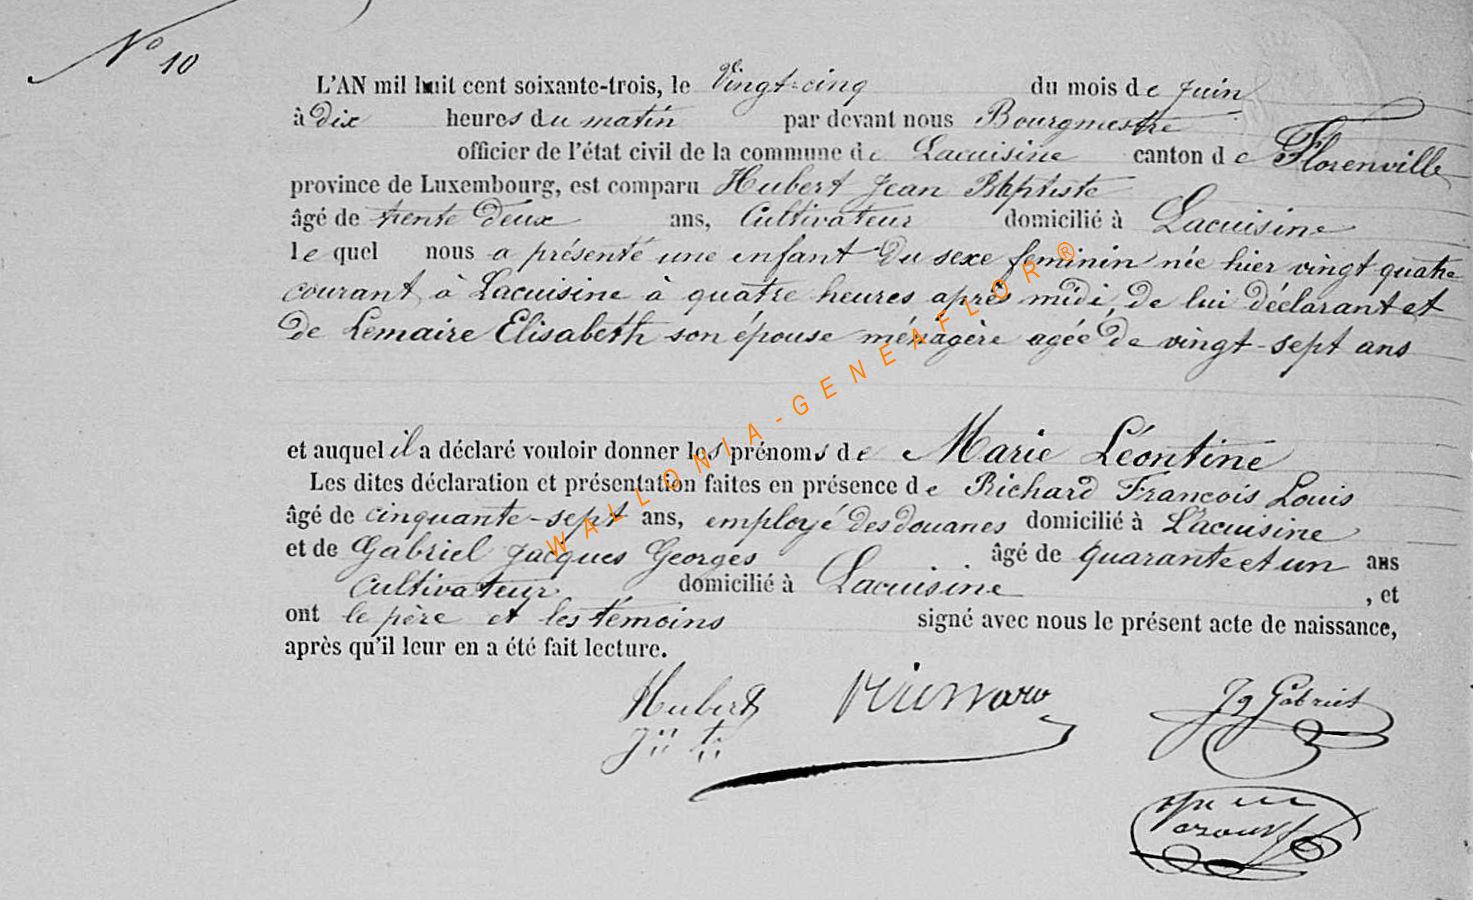 N° 10
L'AN mil huit cent soixante-trois, le Vingt-cinq du mois de juin
à dix heures du matin par devant nous Bourgmestre
officier de l'état civil de la commune de Lacuisine canton de Florenville
province de Luxembourg, est comparu Hubert Jean Baptiste
âgé de trente deux ans, Cultivateur domicilié à Lacuisine
le quel nous a présenté une enfant du sexe feminin née hier vingt quatre
courant à Lacuisine à quatre heures après midi, de lui déclarant et
de Lemaire Elisabeth son épouse ménagère agée de vingt-sept ans
et auquel il a déclaré vouloir donner les prénoms de Marie Léontine
Les dites déclaration et présentation faites en présence de Richard François Louis
âgé de cinquante-sept ans, employé des douanes domicilié à Lacuisine
et de Gabriel Jacques Georges âgé de quarante et un ans
Cultivateur domicilié à Lacuisine, et
ont le père et les témoins signé avec nous le présent acte de naissance,
après qu'il leur en a été fait lecture.
Hubert Jg Gabriel
WALLONIA-GENEAFLOR®